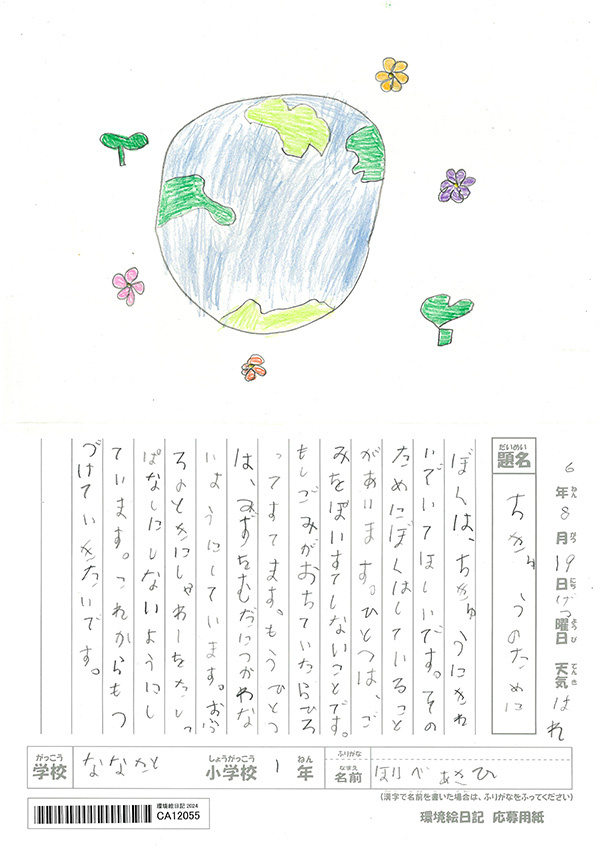 6年ねん8月がつ19日にちげつ曜日ようび 天気てんきはれ
題名だいめい ちきゅうのために
ぼくは、ちきゅうにきれ
いでいてほしいです。その
ためにぼくはしていること
があります。ひとつは、ご
みをぽいすてしないことです。
もしごみがおちていたらひろ
ってすてます。もうひとつ
は、みずをむだにつかわな
いようにしています。おふ
ろのときにしゃわーをだしっ
ぱなしにしないようにし
ています。これからもつ
づけていきたいです。
がっこう 学校 ななかと しょうがっこう 小学校 1 ねん 年
ふりがな
なまえ 名前 ほりべ あさひ
(漢字で名前を書いた場合は、ふりがなをふってください)
環境絵日記 2024
CA12055
環境絵日記 応募用紙